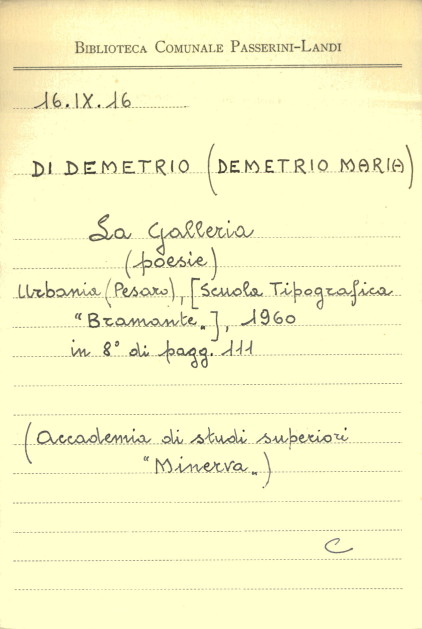 BIBLIOTECA COMUNALE PASSERINI-LANDI
16.IX.16
DI DEMETRIO (DEMETRIO MARIA)
La Galleria
(poesie)
Urbania (Pesaro), [Scuola Tipografica
"Bramante„], 1960
in 8° di pagg. 111
(Accademia di studi superiori
"Minerva„)
C